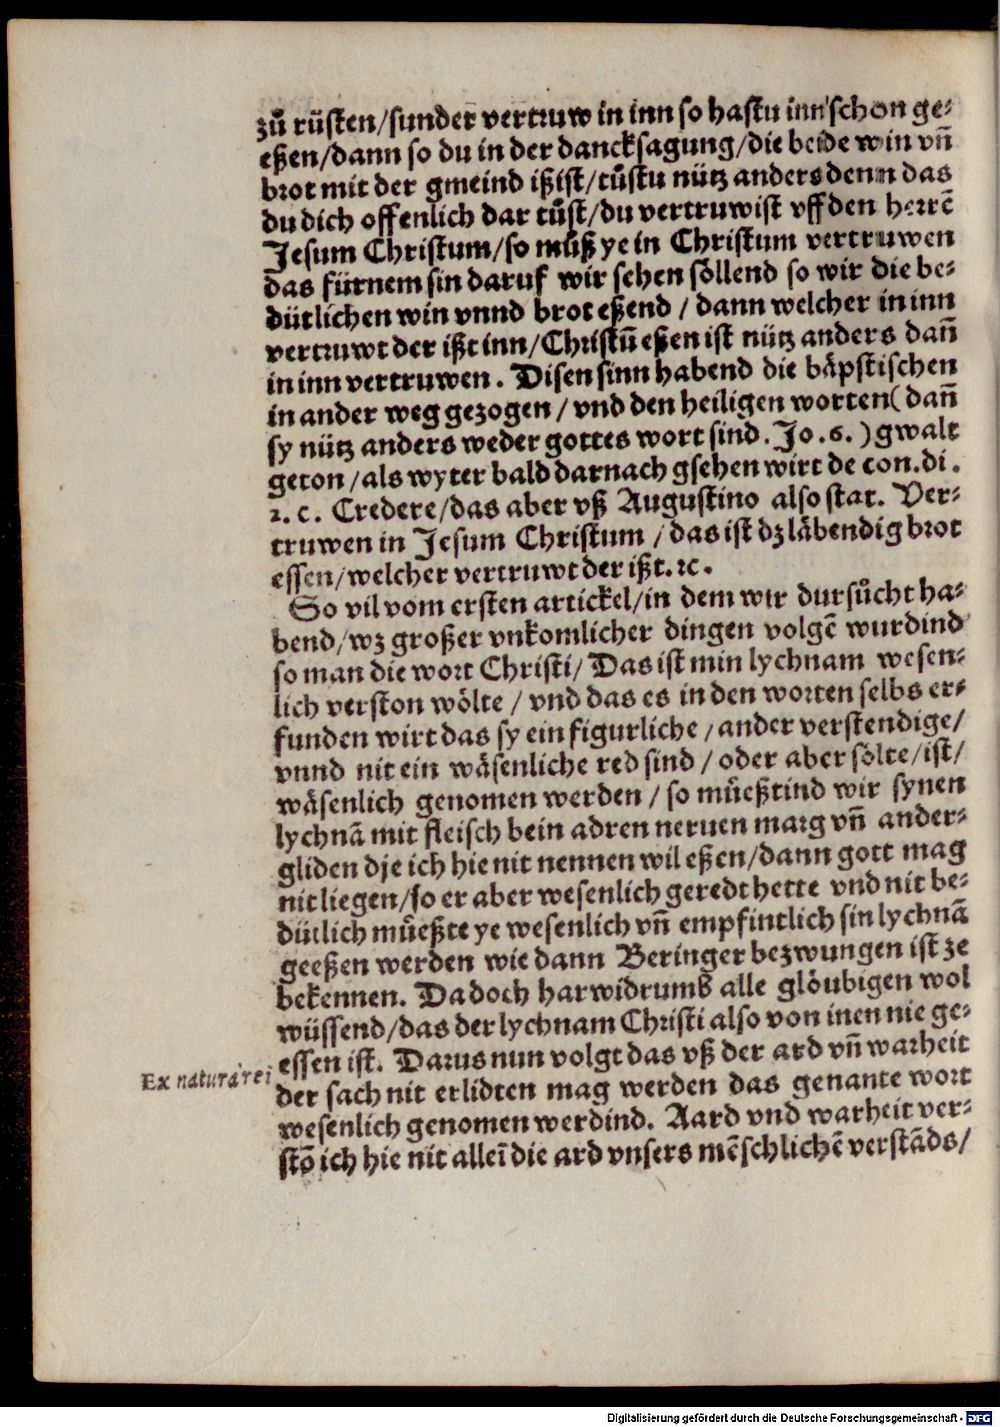 zů rüsten/sunder vertruw in inn so hastu inn schon ge-
eßen/dann so du in der dancksagung/die beide win vñ
brot mit der gmeind ißist/tůstu nütz anders denn das
du dich offenlich dar tůst/du vertruwist vff den herrē
Jesum Christum/so můß ye in Christum vertruwen
das fürnem sin daruf wir sehen söllend so wir die be-
dütlichen win vnnd brot eßend / dann welcher in inn
vertruwt der ißt inn/Christū eßen ist nütz anders dañ
in inn vertruwen . Disen sinn habend die bäpstischen
in ander weg gezogen / vnd den heiligen worten( dañ
sy nütz anders weder gottes wort sind. Jo .6. ) gwalt
geton /als wyter bald darnach gsehen wirt de con.di .
2. c . Credere/das aber vß Augustino also stat. Ver-
truwen in Jesum Christum / das ist dz läbendig brot
essen/welcher vertruwt der ißt. ⁊c .
So vil vom ersten artickel/in dem wir dursůcht ha-
bend/wz großer vnkomlicher dingen volgē wurdind
so man die wort Christi/ Das ist min lychnam wesen-
lich verston wölte / vnd das es in den worten selbs er-
funden wirt das sy ein figurliche /ander verstendige/
vnnd nit ein wäsenliche red sind / oder aber sölte/ist/
wäsenlich genomen werden / so müeßtind wir synen
lychnā mit fleisch bein adren neruen marg vñ ander-
gliden dje ich hie nit nennen wil eßen/dann gott mag
nit liegen/so er aber wesenlich geredt hette vnd nit be-
dütlich müeßte ye wesenlich vñ empfintlich sin lychnā
geeßen werden wie dann Beringer bezwungen ist ze
bekennen. Da doch harwidrumb alle glöubigen wol
wüssend/das der lychnam Christi also von inen nie ge-
essen ist. Darus nun volgt das vß der ard vñ warheit
Ex natura rei
der sach nit erlidten mag werden das genante wort
wesenlich genomen werdind. Aard vnd warheit ver-
stō ich hie nit alleī die ard vnsers mēschlichē verstāds/
Digitalisierung gefördert durch die Deutsche Forschungsgemeinschaft - DFG